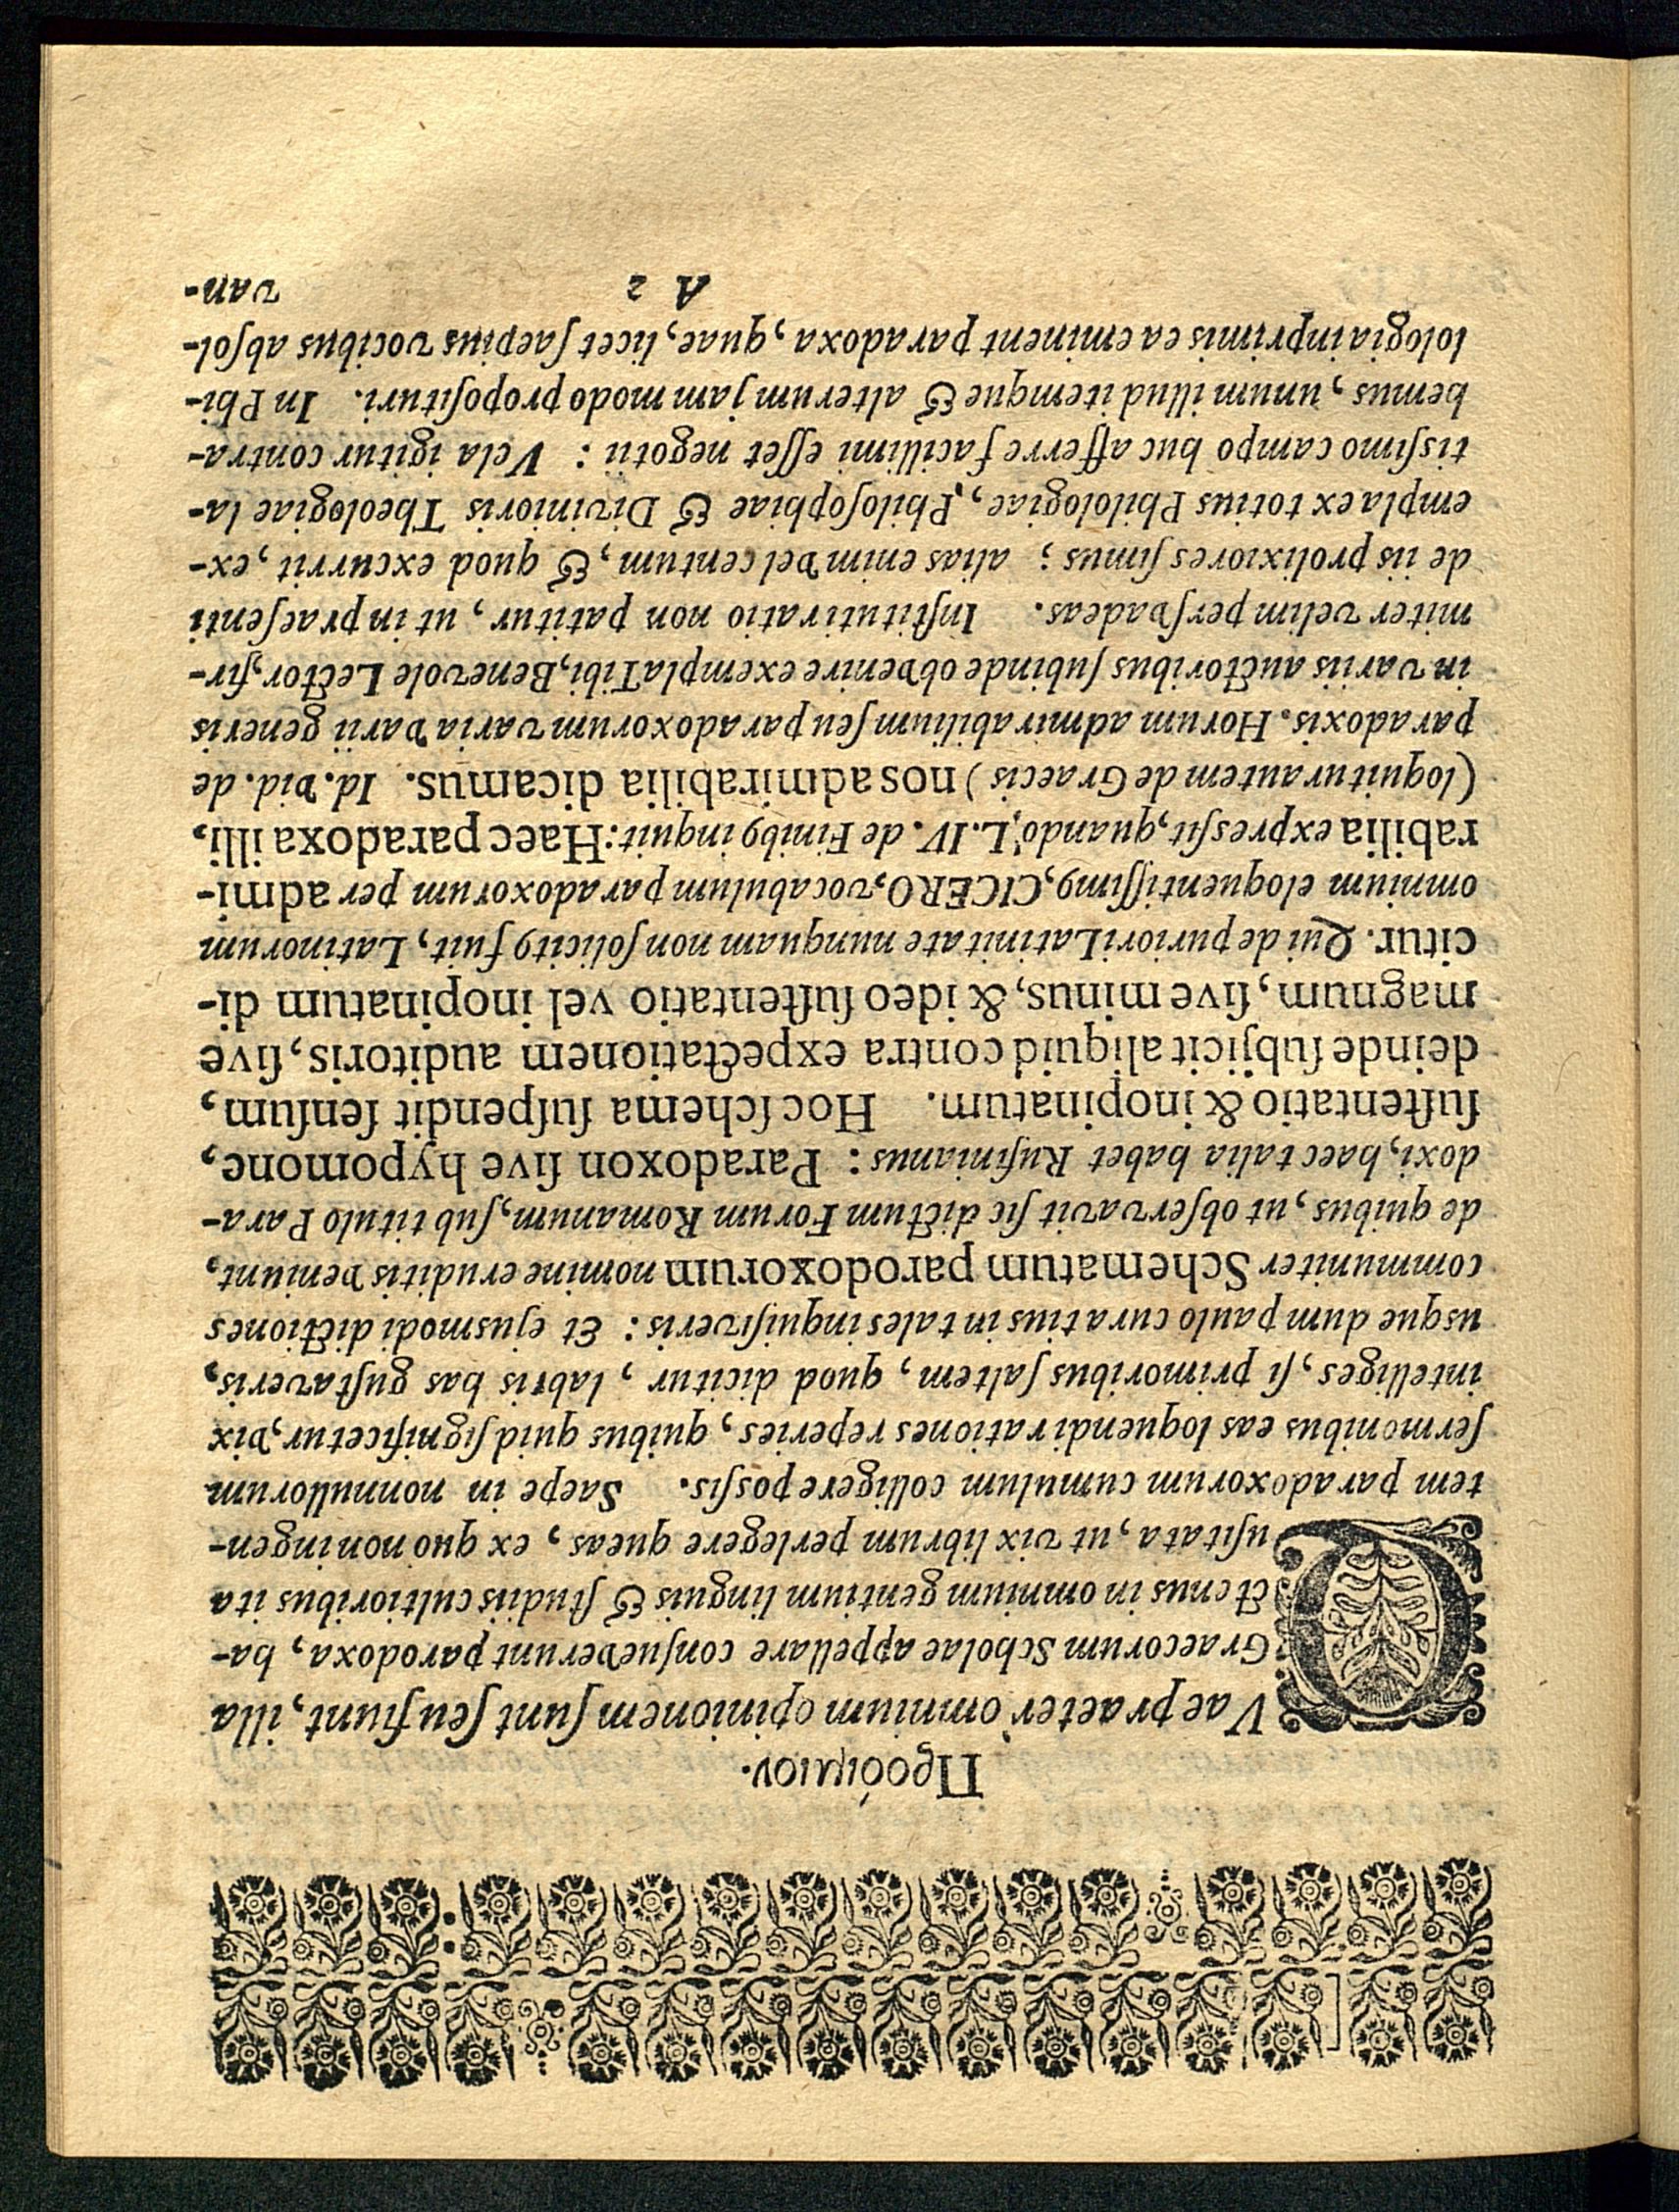 Προοίμιον.
QVae praeter omnium opinionem ſunt ſeu fiunt, illa
Graecorum Scholae appellare conſueverunt parodoxa, ha-
ctenus in omnium gentium linguis & ſtudiis cultioribus ita
uſitata, ut vix librum perlegere queas, ex quo non ingen-
tem paradoxorum cumulum colligere poſsis. Saepe in nonnullorum
ſermonibus eas loquendi rationes reperies, quibus quid ſignificetur, vix
intelliges, ſi primoribus ſaltem, quod dicitur, labris has guſtaveris,
usque dum paulo curatius in tales inquiſiveris: Et ejusmodi dictiones
communiter Schematum parodoxorum nomine eruditis veniunt,
de quibus, ut obſervavit ſic dictum Forum Romanum, ſub titulo Para-
doxi, haec talia habet Rufinianus: Paradoxon ſive hypomone,
ſuſtentatio & inopinatum. Hoc ſchema ſuſpendit ſenſum,
deinde ſubjicit aliquid contra expectationem auditoris, ſive
magnum, ſive minus, & ideo ſuſtentatio vel inopinatum di-
citur. Qui de puriori Latinitate nunquam non ſolicitꝰ fuit, Latinorum
omnium eloquentiſſimꝰ, CICERO, vocabulum paradoxorum per admi-
rabilia expreſſit, quando, L. IV. de Finibꝰ inquit: Haec paradoxa illi,
(loquitur autem de Graecis) nos admirabilia dicamus. Id. vid. de
paradoxis. Horum admirabilium ſeu paradoxorum varia varii generis
in variis auctoribus ſubinde obvenire exempla Tibi, Benevole Lector, fir-
miter velim perſvadeas. Inſtituti ratio non patitur, ut in praeſenti
de iis prolixiores ſimus; alias enim vel centum, & quod excurrit, ex-
empla ex totius Philologiae, Philoſophiae & Divinioris Theologiae la-
tiſſimo campo huc afferre facillimi eſſet negotii: Vela igitur contra-
hemus, unum illud itemque & alterum jam modo propoſituri. In Phi-
lologia inprimis ea eminent paradoxa, quae, licet ſaepius vocibus abſol-
A 2 van-